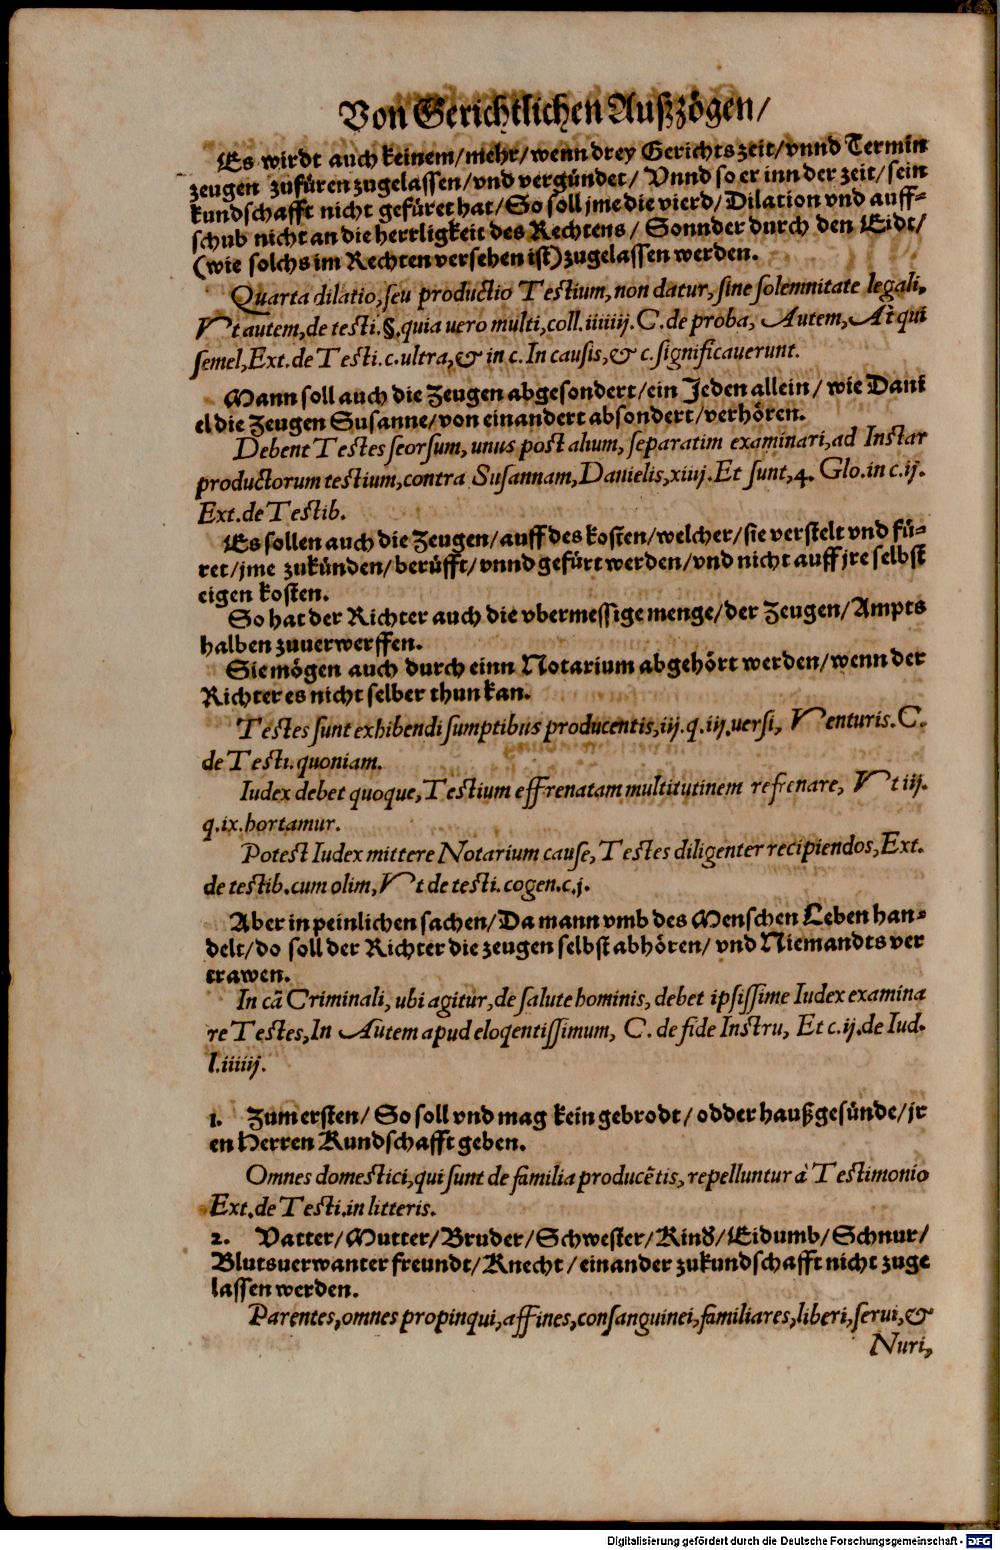 Von Gerichtlichen Außzögen/
Es wirdt auch keinem/mehr/wenn drey Gerichts zeit/vnnd Termin
zeugen zufüren zugelassen/vnd vergündet/ Vnnd so er inn der zeit/sein
kundschafft nicht gefüret hat/So soll jme die vierd/Dilation vnd auff-
schub nicht an die herrligkeit des Rechtens/ Sonnder durch den Eidt/
(wie solchs im Rechten versehen ist) zugelassen werden.
Quarta dilatio, seu productio Testium, non datur, sine solemnitate legali,
Vt autem, de testi. §. quia uero multi, coll. iiiiij. C. de proba, Autem, At qui
semel, Ext. de Testi. c. ultra, & in c. In causis, & c. significauerunt.
Mann soll auch die Zeugen abgesondert/ein Jeden allein/ wie Dani
el die Zeugen Susanne/von einandert absondert/verhören.
Debent Testes seorsum, unus post alium, separatim examinari, ad Instar
productorum testium, contra Susannam, Danielis, xiiij. Et sunt, 4. Glo. in c. ij.
Ext. de Testib.
Es sollen auch die Zeugen/auff des kosten/welcher/sie verstelt vnd fü-
ret/jme zukünden/berüfft/vnnd gefürt werden/vnd nicht auff jre selbst
eigen kosten.
So hat der Richter auch die vbermessige menge/der Zeugen/Ampts
halben zuuerwerffen.
Sie mögen auch durch einn Notarium abgehört werden/wenn der
Richter es nicht selber thun kan.
Testes sunt exhibendi sumptibus producentis, iij. q. iij. uersi, Venturis. C.
de Testi. quoniam.
Iudex debet quoque, Testium effrenatam multitutinem refrenare, Vt iij.
q. ix. hortamur.
Potest Iudex mittere Notarium cause, Testes diligenter recipiendos, Ext.
de testib. cum olim, Vt de testi. cogen. c. j.
Aber in peinlichen sachen/Da mann vmb des Menschen Leben han-
delt/do soll der Richter die zeugen selbst abhören/ vnd Niemandts ver
trawen.
In cã Criminali, ubi agitur, de salute hominis, debet ipsissime Iudex examina
re Testes, In Autem apud eloqentissimum, C. de fide Instru, Et c. ij. de Iud.
l. iiiiij.
1. Zum ersten/ So soll vnd mag kein gebrodt/ odder haußgesünde/jr
en Herren Kundschafft geben.
Omnes domestici, qui sunt de familia producẽtis, repelluntur à Testimonio
Ext. de Testi. in litteris.
2. Vatter/Mutter/Bruder/Schwester/Kind/Eidumb/Schnur/
Blutsuerwanter freundt/Knecht/einander zukundschafft nicht zuge
lassen werden.
Parentes, omnes propinqui, affines, consanguinei, familiares, liberi, serui, &
Nuri,
Digitalisierung gefördert durch die Deutsche Forschungsgemeinschaft - DFG